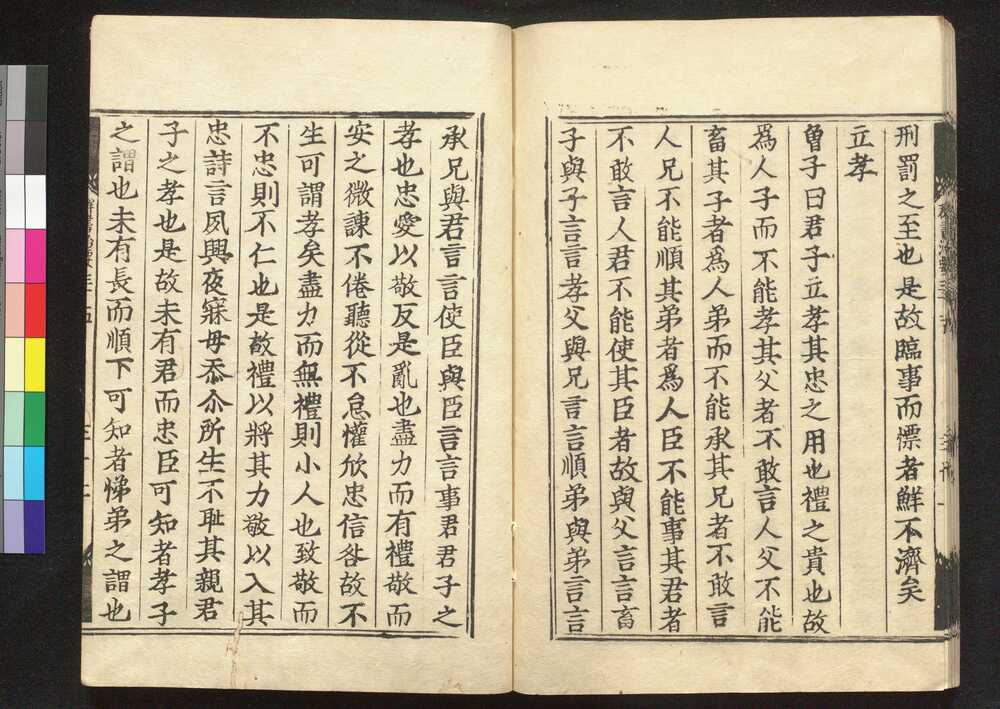 刑罰之至也是故臨事而慄者鮮不濟矣
立孝
曾子曰君子立孝其忠之用也禮之貴也故
爲人子而不能孝其父者不敢言人父不能
畜其子者爲人弟而不能承其兄者不敢言
人兄不能順其弟者爲人臣不能事其君者
不敢言人君不能使其臣者故與父言言畜
子與子言言孝父與兄言言順弟與弟言言
承兄與君言言使臣與臣言言事君君子之
孝也忠愛以敬反是亂也盡力而有禮敬而
安之微諫不倦聽從不怠懽欣忠信咎故不
生可謂孝矣盡力而無禮則小人也致敬而
不忠則不仁也是故禮以將其力敬以入其
忠詩言夙興夜寐毋忝尒所生不耻其親君
子之孝也是故未有君而忠臣可知者孝子
之謂也未有長而順下可知者悌弟之謂也
群書治要三十五